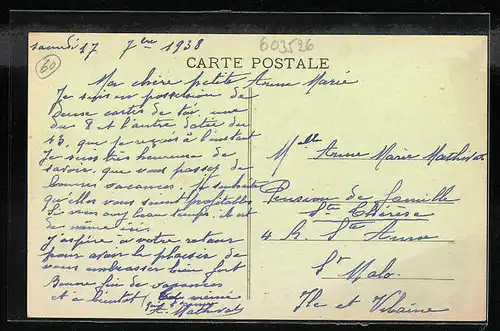 samedi 17 7bre 1938
603526
60
CARTE POSTALE
Ma chère petite Anne Marie
Je suis en possession de
deux cartes de toi une
du 8 et l'autre datée du
13, que je reçois à l'instant
Je suis très heureuse de
savoir que vous passez de
bonnes vacances, je souhaite
qu'elles vous soient profitables
Si vous avez beau temps, il est
de même ici
J'espère à votre retour
pour avoir le plaisir de
vous embrasser bien fort
Bonne fin de vacances
et à bientôt mémé
qui t'aime
Melle Anne Marie
Pension de famille
Ste Thérèse
4 R. Ste Anne
St Malo
Ile et Vilaine